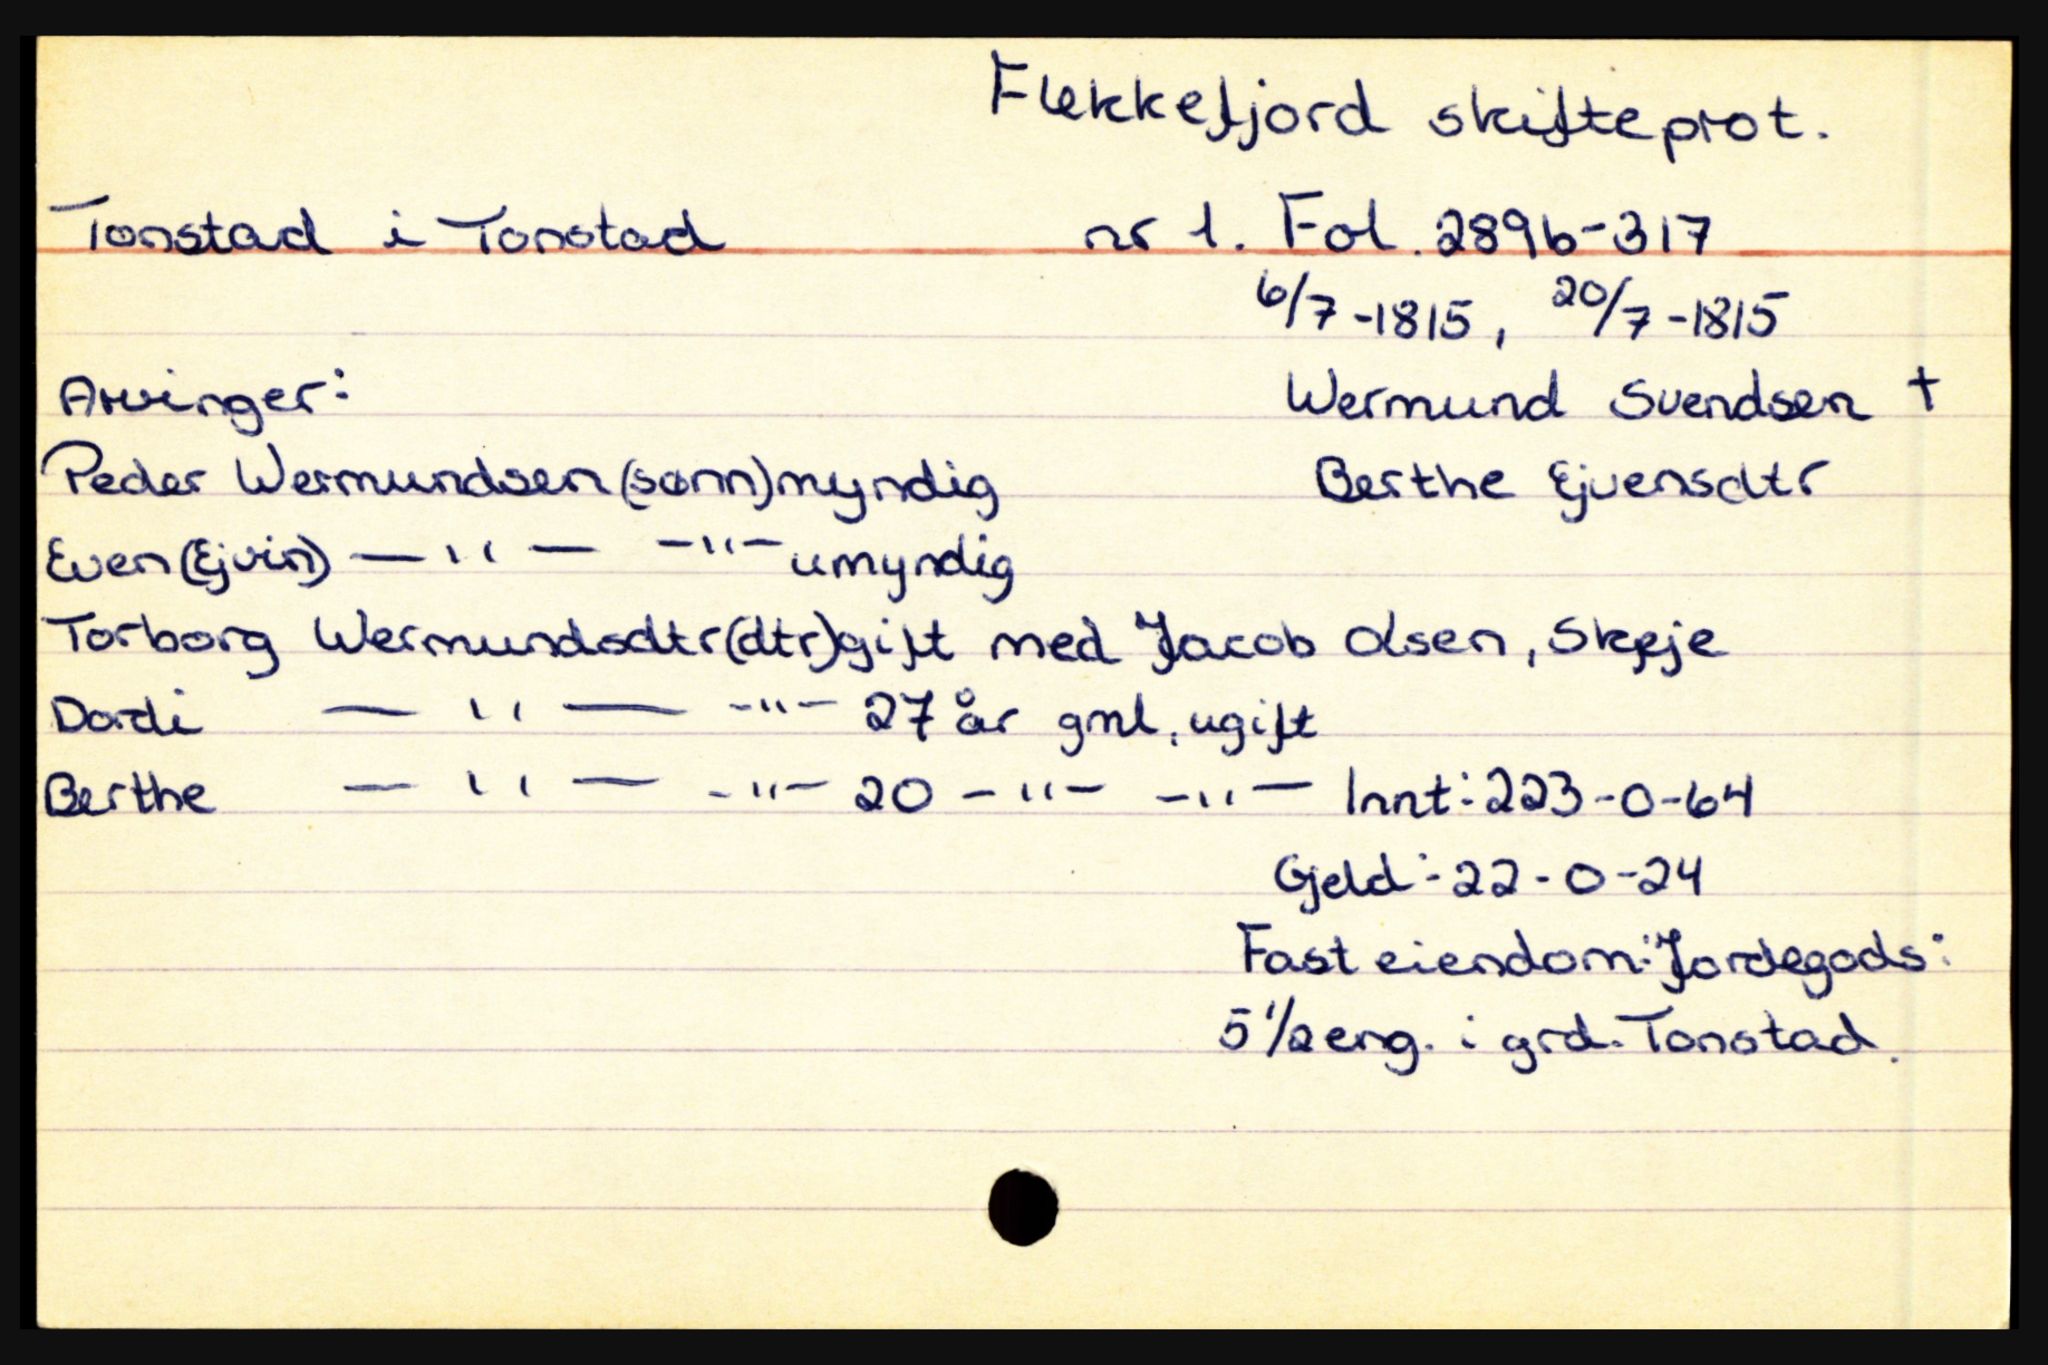 Flekkefjord skifteprot.
Tonstad i Tonstad nr 1. Fol. 289b-317
6/7-1815, 20/7-1815
Arvinger: Wermund Svendsen +
Peder Wermundsen (sønn) myndig Berthe Ejvensdtr
Even (Ejvin) — " — -"- umyndig
Torborg Wermundsdtr (dtr) gift med Jacob Olsen, Skeje
Dordi — " — -"- 27 år gml, ugift
Berthe — " — -"- 20 -"- -"- Innt: 223-0-64
Gjeld: 22-0-24
Fast eiendom: Jordegods:
5 1/2 eng. i grd. Tonstad.